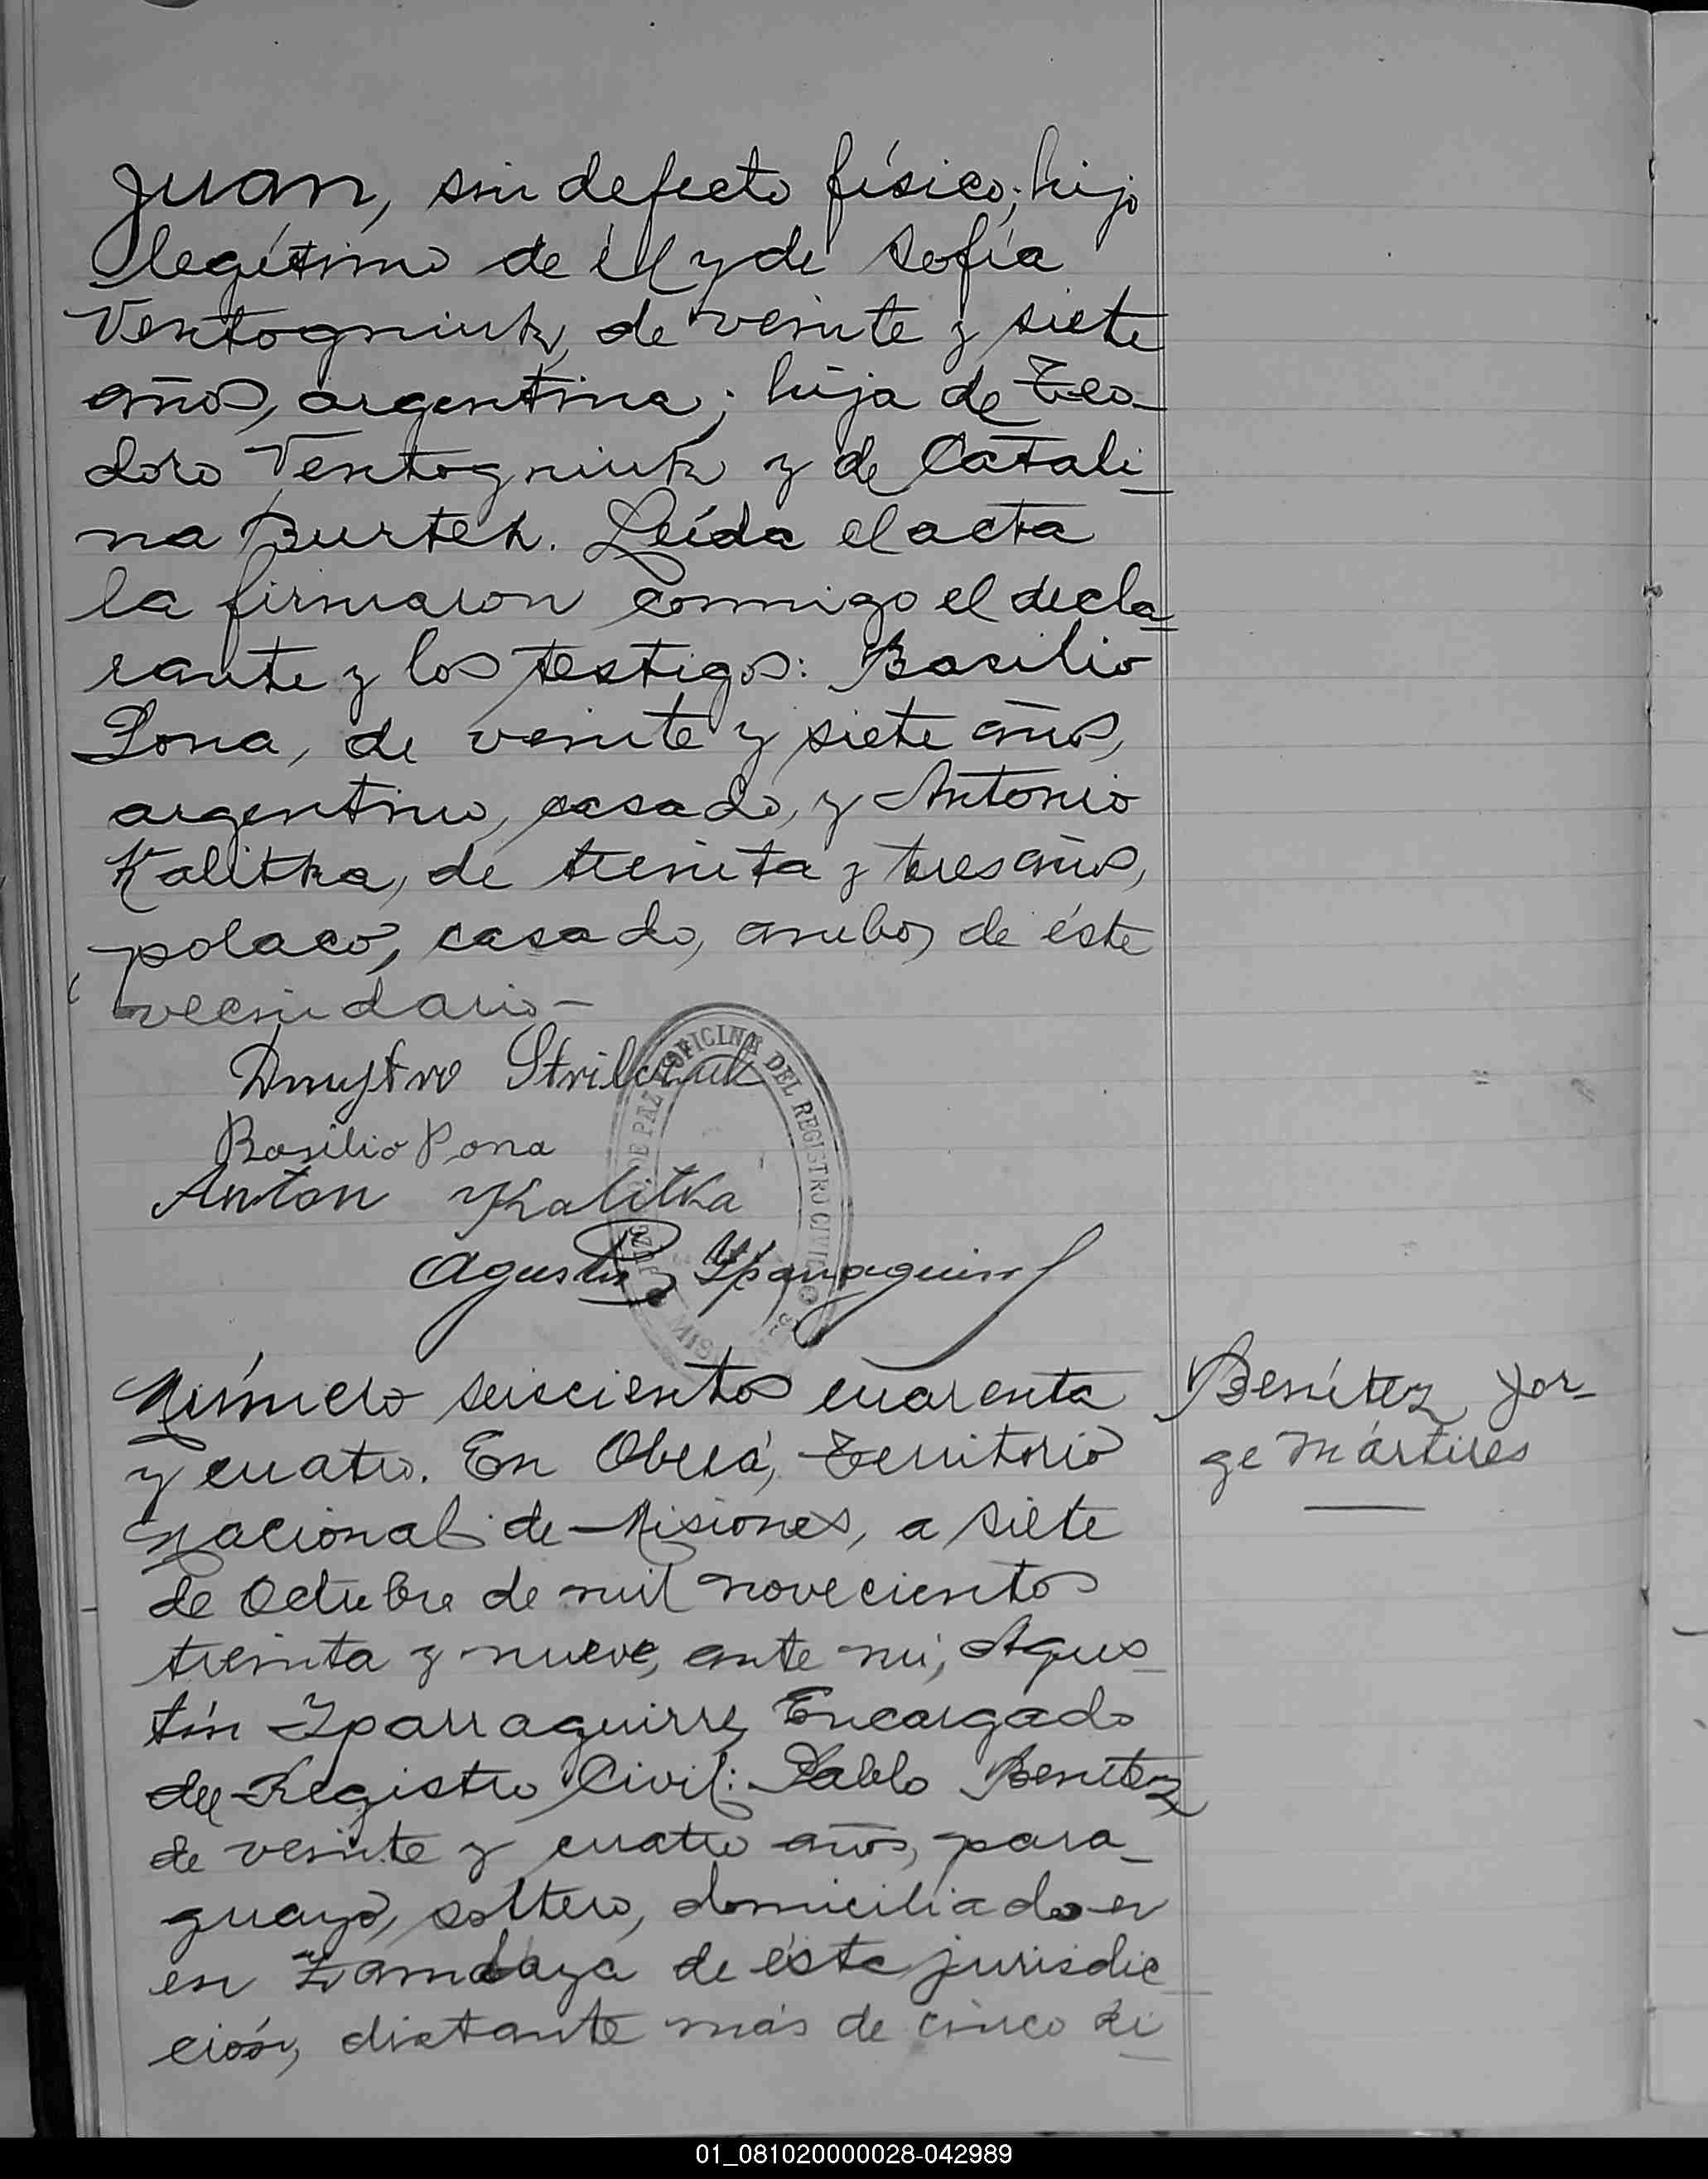 Juan, sin defecto físico; hijo
legítimo de él y de Sofía
Ventogniuk, de veinte y siete
años, argentina; hija de Teo-
doro Ventogniuk y de Catali-
na Burtek. Leída el acta
la firmaron conmigo el decla-
rante y los testigos: Basilio
Pona, de veinte y siete años,
argentino, casado, y Antonio
Kalitka, de treinta y tres años,
polaco, casado, ambos de éste
vecindario-
Dmytro
Basilio Pona
Anton Kalitka
Agustín Iparraguirre
OFICINA DEL REGISTRO CIVIL
JUZG DE PAZ
MIS
Número seiscientos cuarenta
y cuatro. En Oberá, Territorio
Nacional de Misiones, a siete
de Octubre de mil novecientos
treinta y nueve, ante mi, Agus-
tín Iparraguirre, Encargado
del Registro Civil: Pablo Benítez
de veinte y cuatro años, para-
guayo, soltero, domiciliado en
en de ésta jurisdic-
ción, distante más de cinco ki-
Benítez Jor-
ge Mártires
01_081020000028-042989